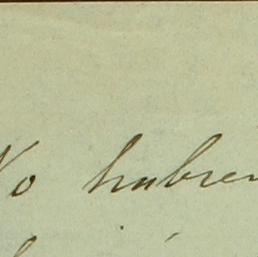 No hubien